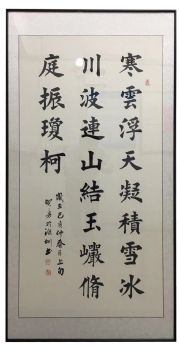 寒雲浮天凝積雪冰
川波連山結玉巖脩
庭振瓊柯
歲在己亥仲春月上旬
於深圳書